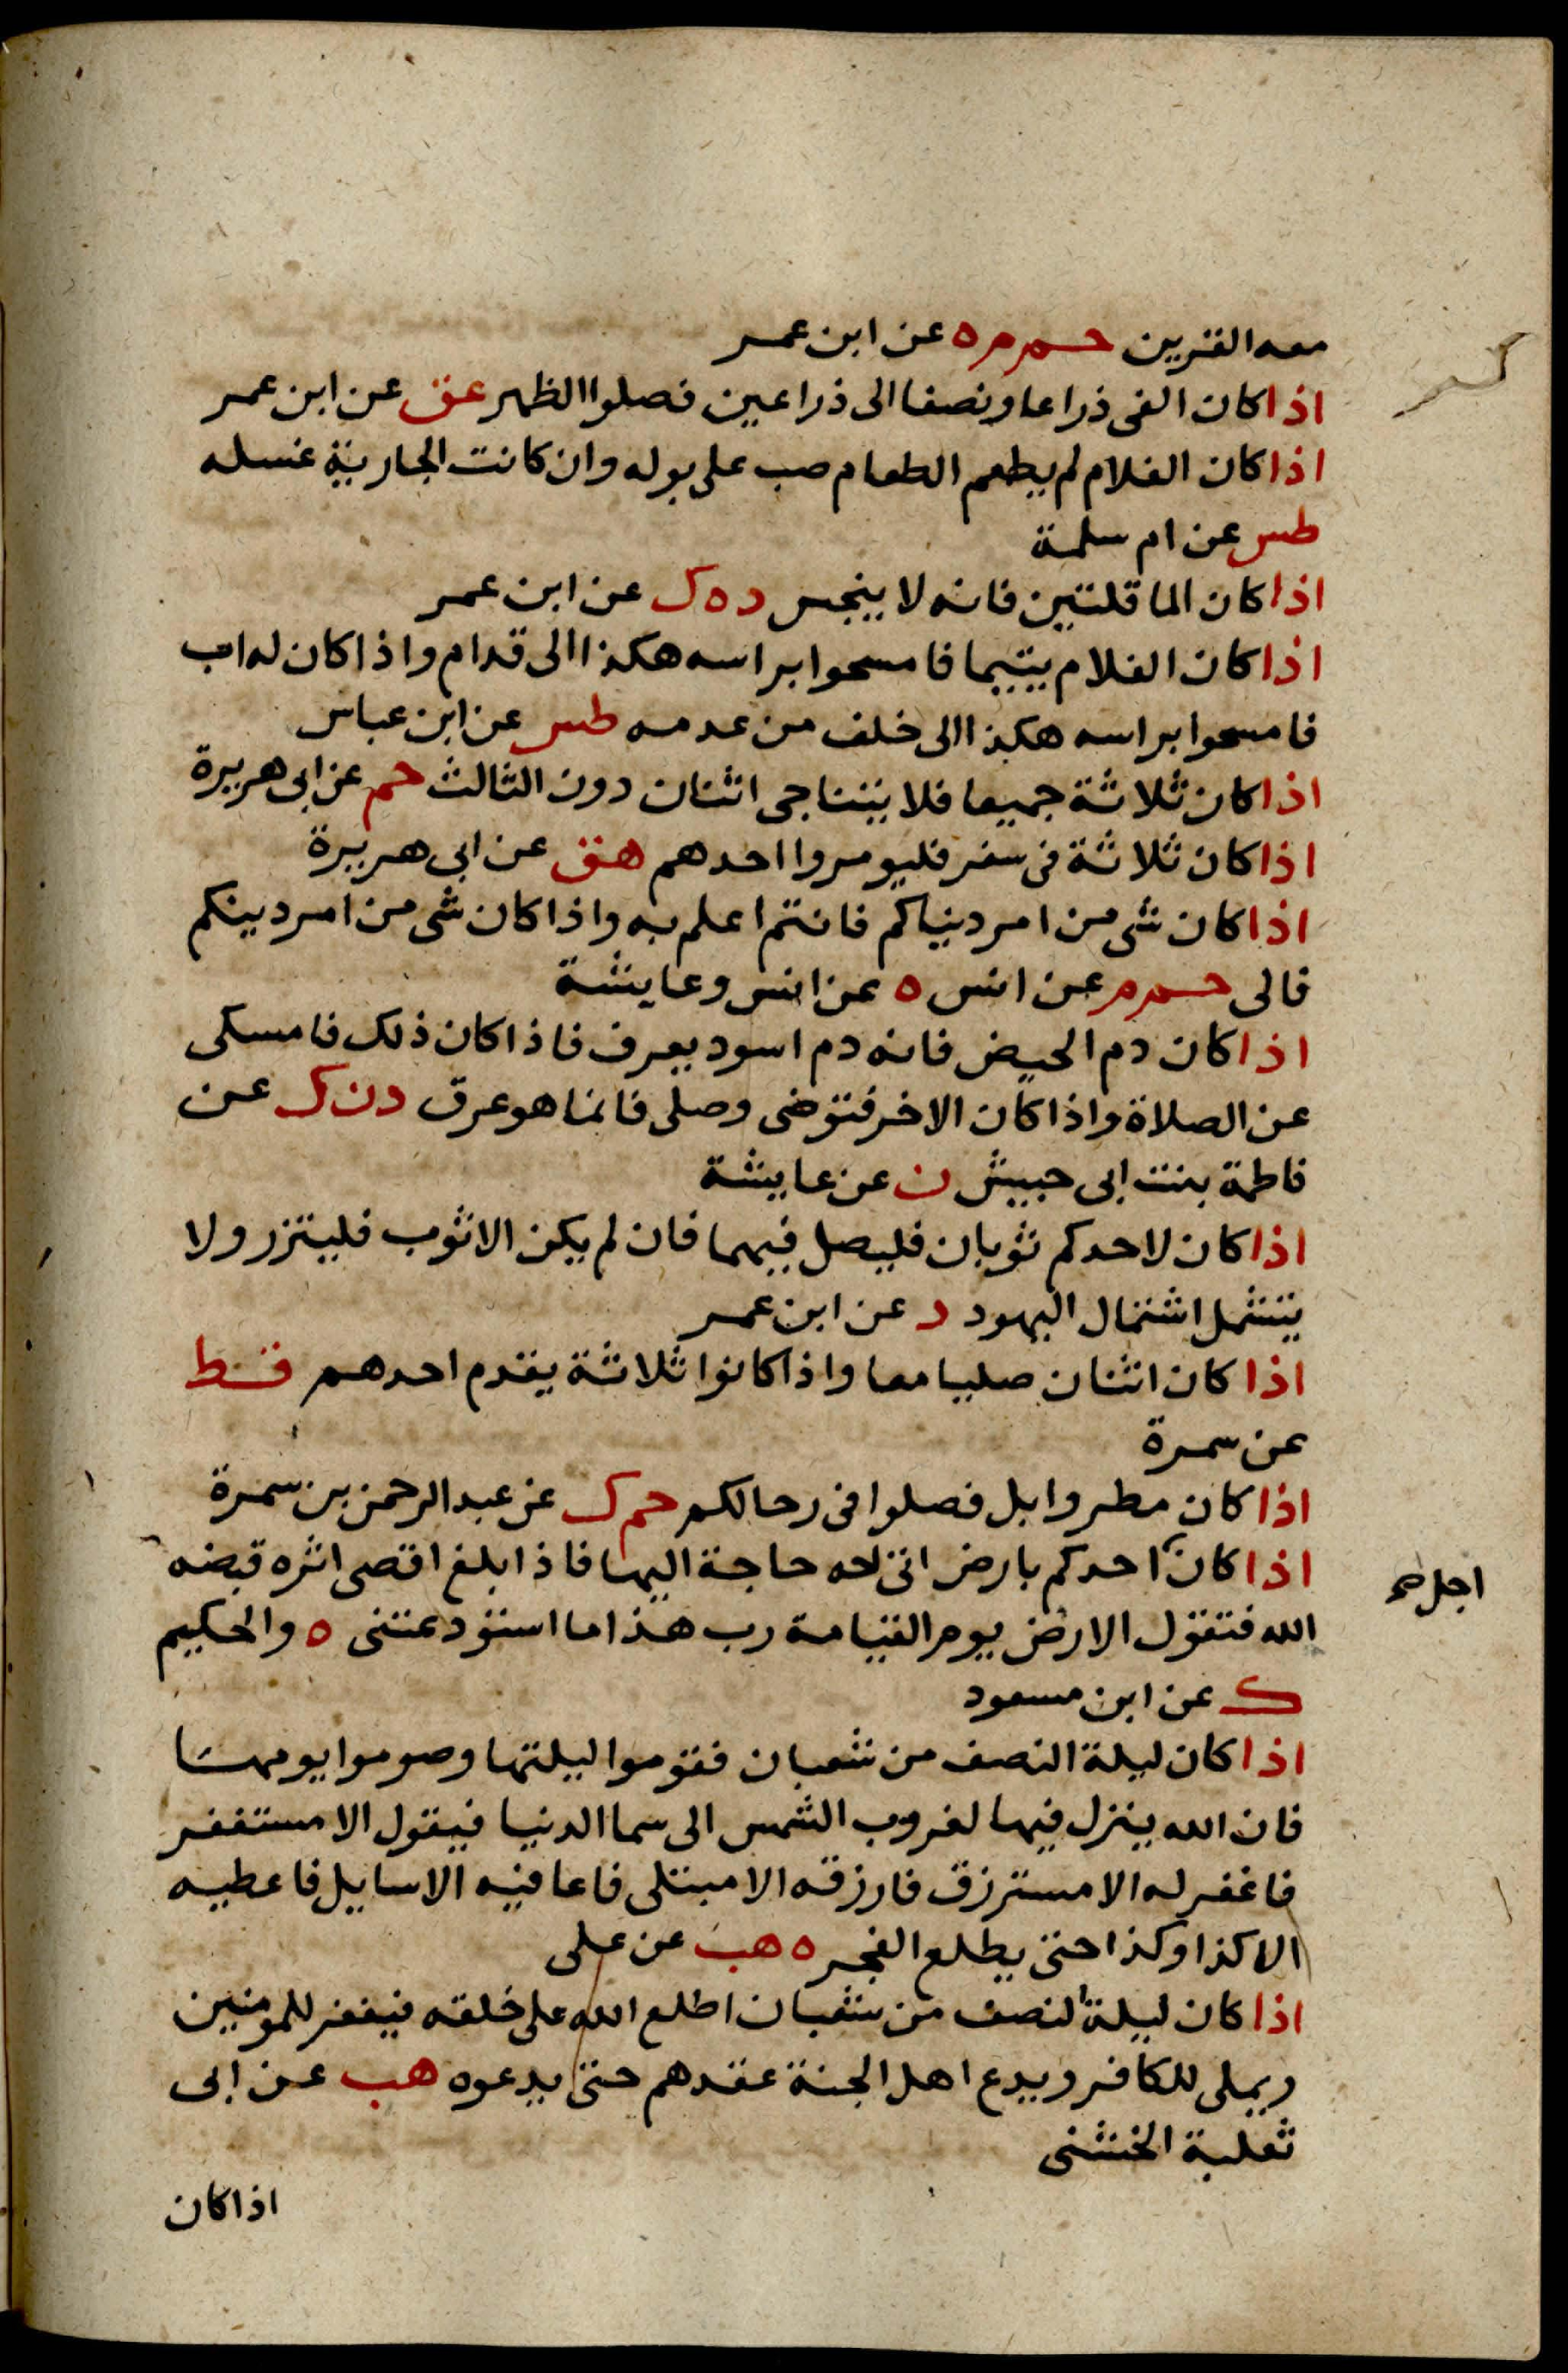 معه القرين حم م ه عن ابن عمر
اذا كان الفى ذراعا ونصفا الى ذراعين فصلوا الظهر عق عن ابن عمر
اذا كان الغلام لم يطعم الطعام صب على بوله وان كانت الجارية غسله
طس عن ام سلمة
اذا كان الما قلتين فانه لا ينجس د ه ك عن ابن عمر
اذا كان الغلام يتيما فامسحوا براسه هكذا الى قدام واذا كان له اب
فامسحوا براسه هكذا الى خلف من عدمه طس عن ابن عباس
اذا كان ثلاثة جميعا فلا يتناجى اثنان دون الثالث حم عن ابى هريرة
اذا كان ثلاثة فى سفر فليومروا احدهم هق عن ابى هريرة
اذا كان شى من امر دنياكم فانتم اعلم به واذا كان شى من امر دينكم
فالى حم م عن انس ه عن انس وعايشة
اذا كان دم الحيض فانه دم اسود يعرف فاذا كان ذلك فامسكى
عن الصلاة واذا كان الاخر فتوضى وصلى فانما هو عرق د ن ك عن
فاطمة بنت ابى حبيش ن عن عايشة
اذا كان لاحدكم ثوبان فليصل فيهما فان لم يكن الا ثوب فليتزر ولا
يشتمل اشتمال اليهود د عن ابن عمر
اذا كان اثنان صليا معا واذا كانوا ثلاثة يقدم احدهم قط
عن سمرة
اذا كان مطر وابل فصلوا فى رحالكم حم ك عن عبد الرحمن بن سمرة
اذا كان احدكم بارض اتى له حاجة اليها فاذا بلغ اقصى اثره قبضه
اجل صح
الله فتقول الارض يوم القيامة رب هذا ما استودعتنى ه والحكيم
ك عن ابن مسعود
اذا كان ليلة النصف من شعبان فقوموا ليلتها وصوموا يومها
فان الله ينزل فيها لغروب الشمس الى سما الدنيا فيقول الا مستغفر
فاغفر له الا مسترزق فارزقه الا مبتلى فاعافيه الا سايل فاعطيه
الا كذا وكذا حتى يطلع الفجر ه هب عن على
اذا كان ليلة النصف من شعبان اطلع الله على خلقه فيغفر للمومنين
ويملى للكافر ويدع اهل الجنة عقدهم حتى يدعوه هب عن ابى
ثعلبة الخشنى
اذا كان